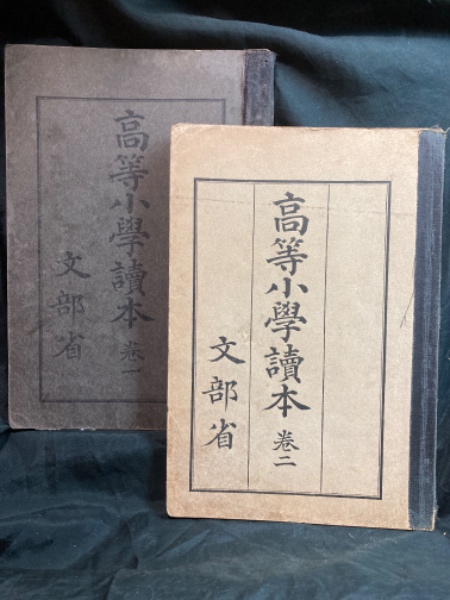 高等小學讀本 卷一
文部省
高等小學讀本 卷二
文部省